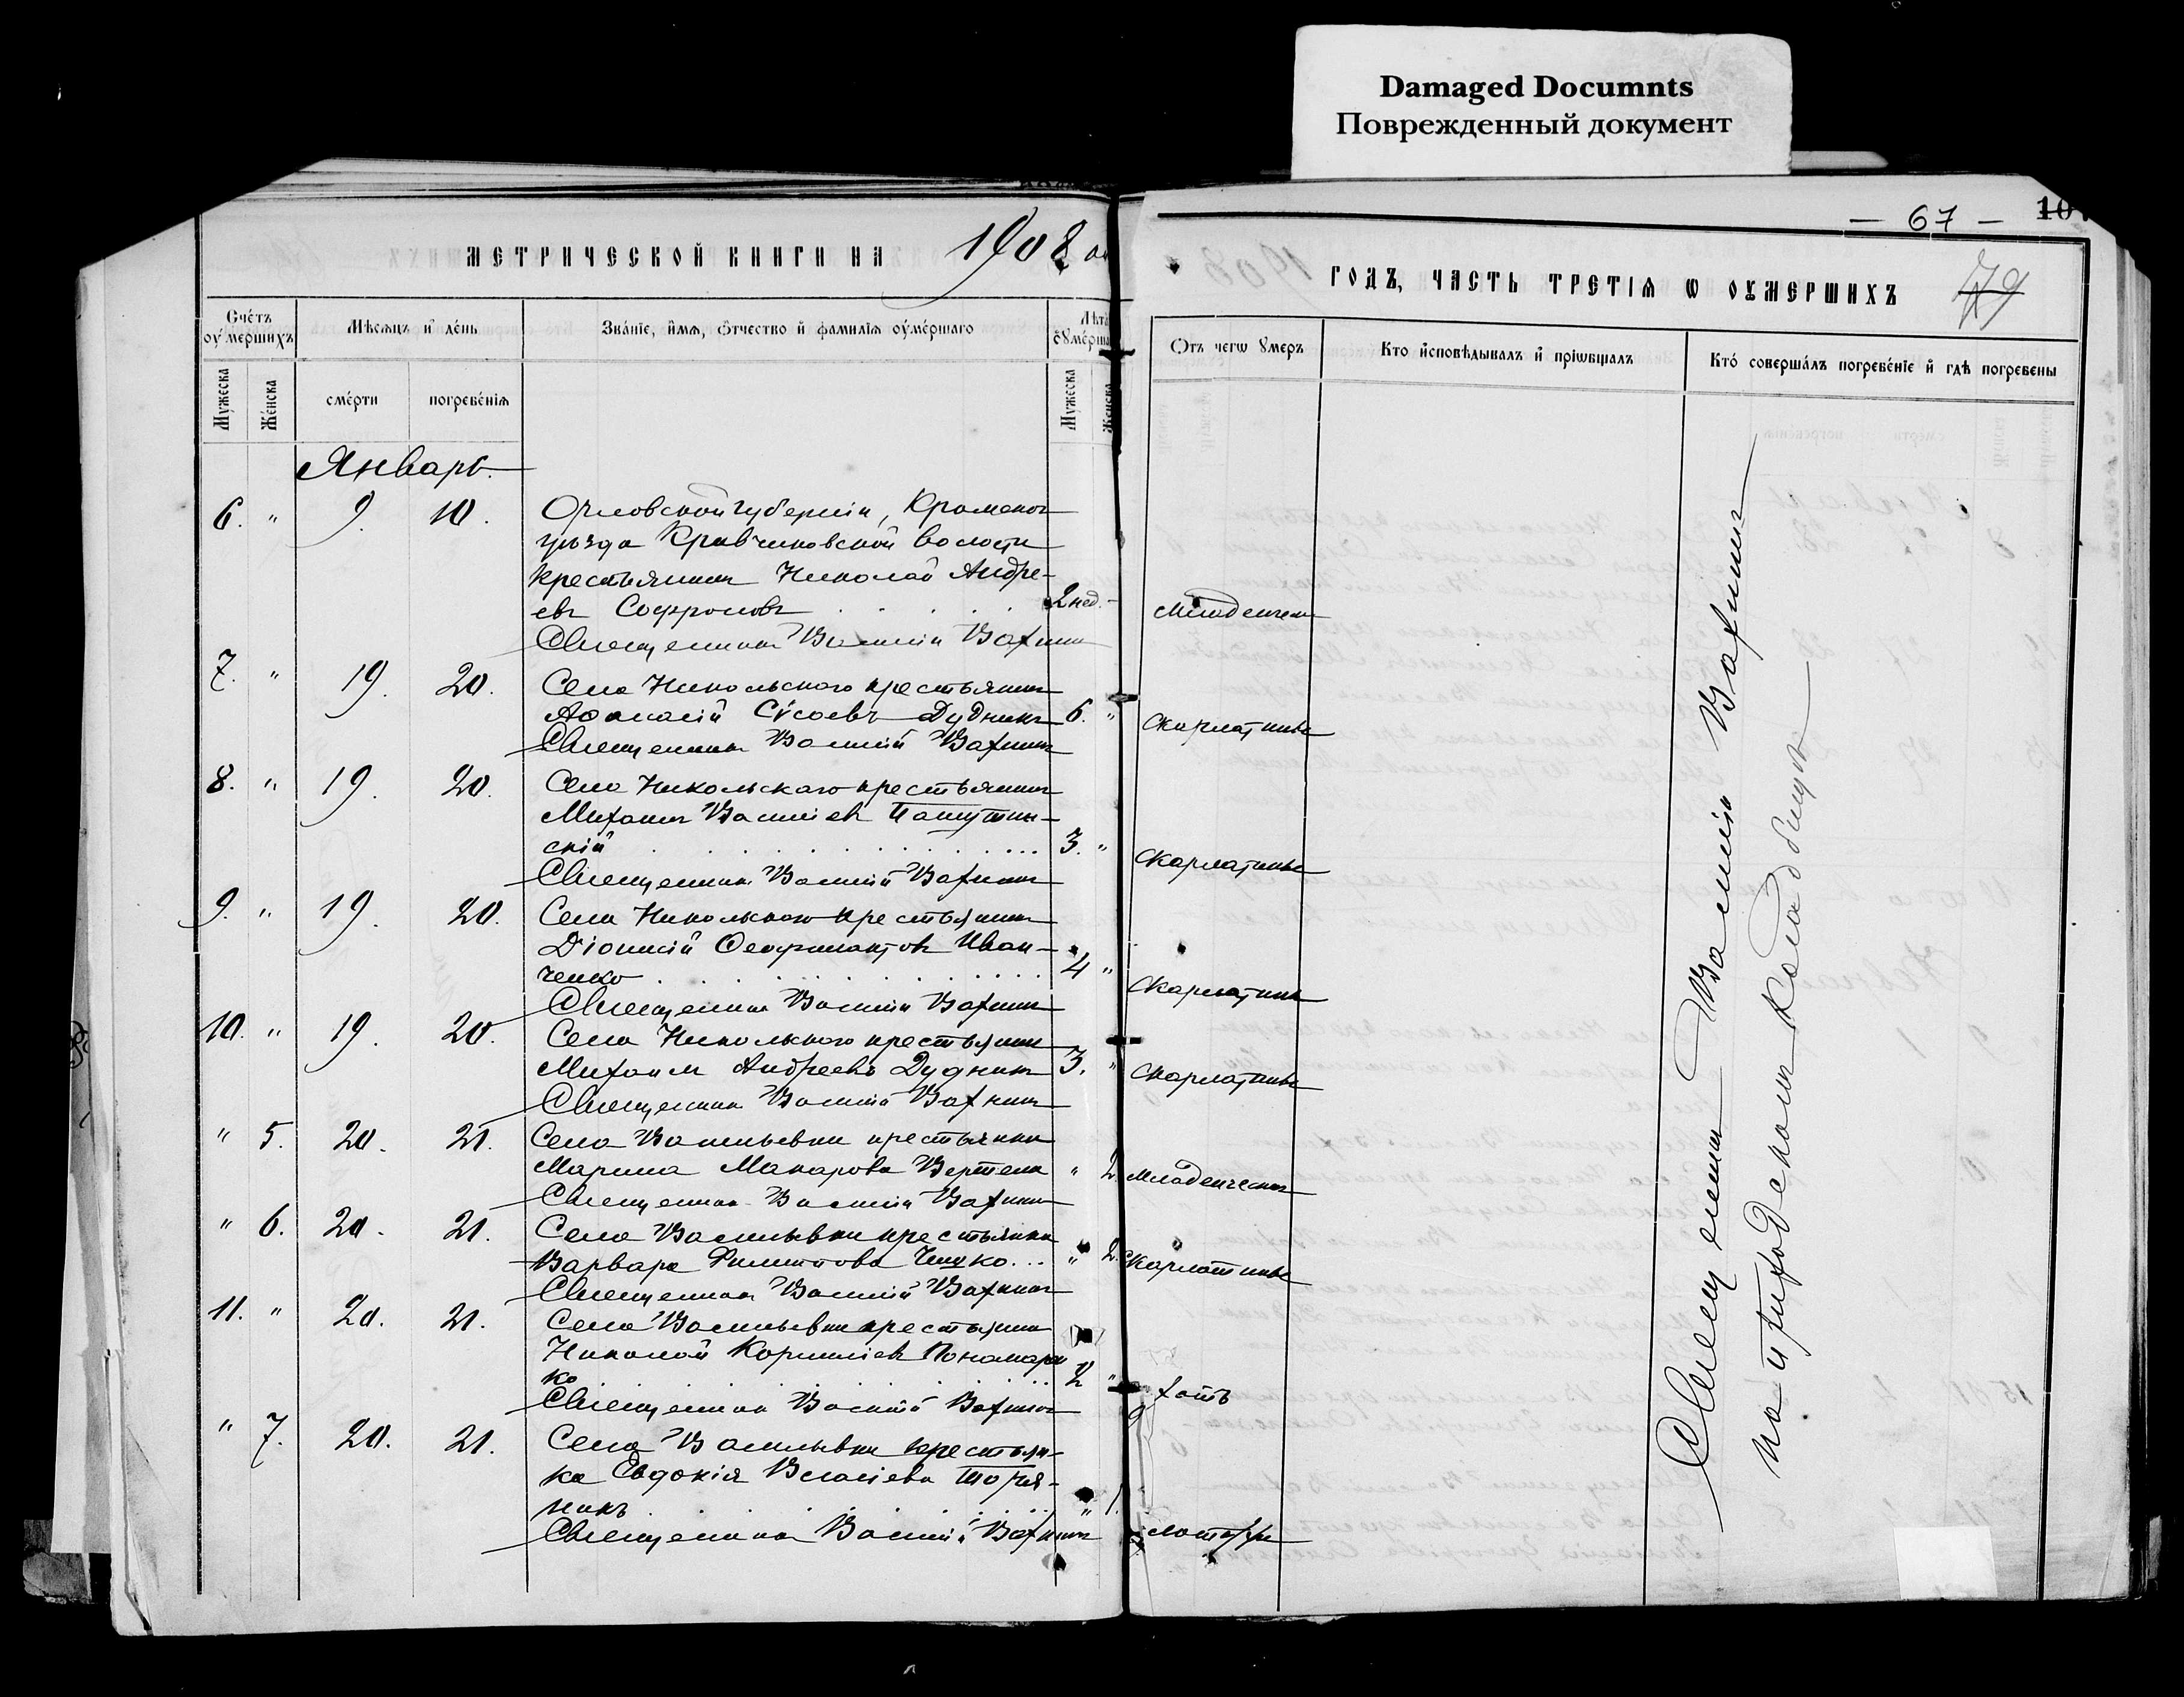 Damaged Documnts
Поврежденный документ
— 67 —
МЕТРИЧЕСКОЙ КНИГИ НА 1908
ГОДЪ, ЧАСТЬ ТРЕТІЯ Ѡ ОУМЕРШИХЪ
79
Счетъ оумершихъ
Мѣсяцъ и день
Званіе, имя, отчество и фамилія оумершаго
Лѣта
Мужеска
Женска
смерти
погребенія
Мужеска
Женска
Отъ чегѡ умеръ
Кто исповѣдывалъ и пріѡбщалъ
Кто совершалъ погребеніе и гдѣ погребены
Январь.
6. " 9. 10. Орловской губерніи, Кромского
уѣзда Кривчиковской волости
крестьянинъ Николай Андре-
евъ Софроновъ 2 нед. -
Священникъ Василій Вахнинъ
7. " 19. 20. Села Никольскаго крестьянинъ
Аѳанасій Сѵсоевъ Дудникъ 6. " Скарлатины
Священникъ Василій Вахнинъ
8. " 19. 20. Села Никольскаго крестьянинъ
Михаилъ Василіевъ
скій 3. " Скарлатины
Священникъ Василій Вахнинъ
9. " 19. 20. Села Никольскаго крестьянинъ
Діонисій Феофилактовъ Иван-
ченко 4 " Скарлатины
Священникъ Василій Вахнинъ
10. " 19. 20. Села Никольскаго крестьянинъ
Михаилъ Андреевъ Дудникъ 3. " Скарлатины
Священникъ Василій Вахнинъ
" 5. 20. 21. Села Васильевки крестьянка
Марина Макарова " 2.
Священникъ Василій Вахнинъ
" 6. 20. 21. Села Васильевки крестьянка
Варвара Филиппова " 2. Скарлатины
Священникъ Василій Вахнинъ
11. " 20. 21. Села Васильевки крестьянинъ
Николай Корниліевъ Понамарен
ко 2 "
Священникъ Василій Вахнинъ
" 7. 20. 21. Села Васильевки крестьян-
ка Евдокія Власіева
никъ " 1.
Священникъ Василій Вахнинъ
Священникъ Василій Вахнинъ
на приходскомъ кладбищѣ